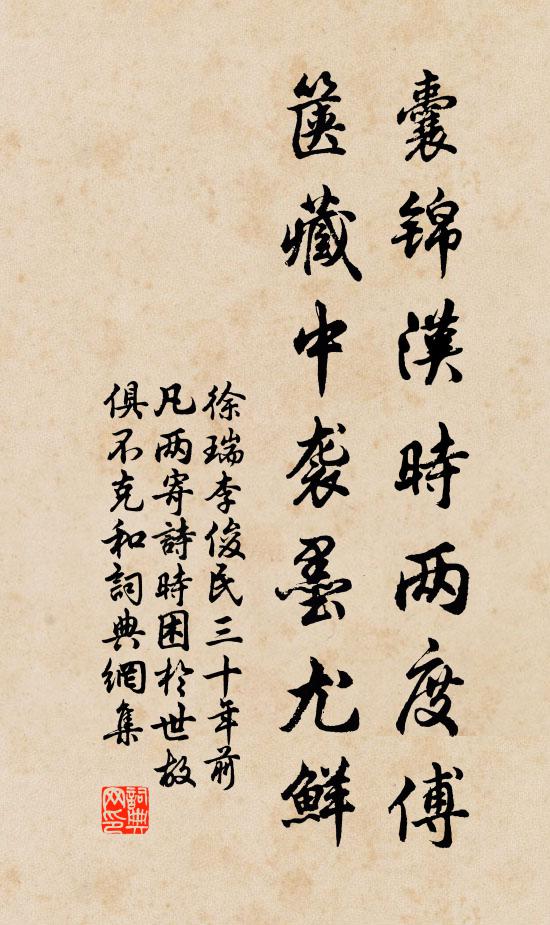 囊锦漢時两度傅
箧藏中袭墨尤鮮
徐瑞李俊民三十年前
凡两寄詩時困於世故
俱不克和詞典網集
詞典网印